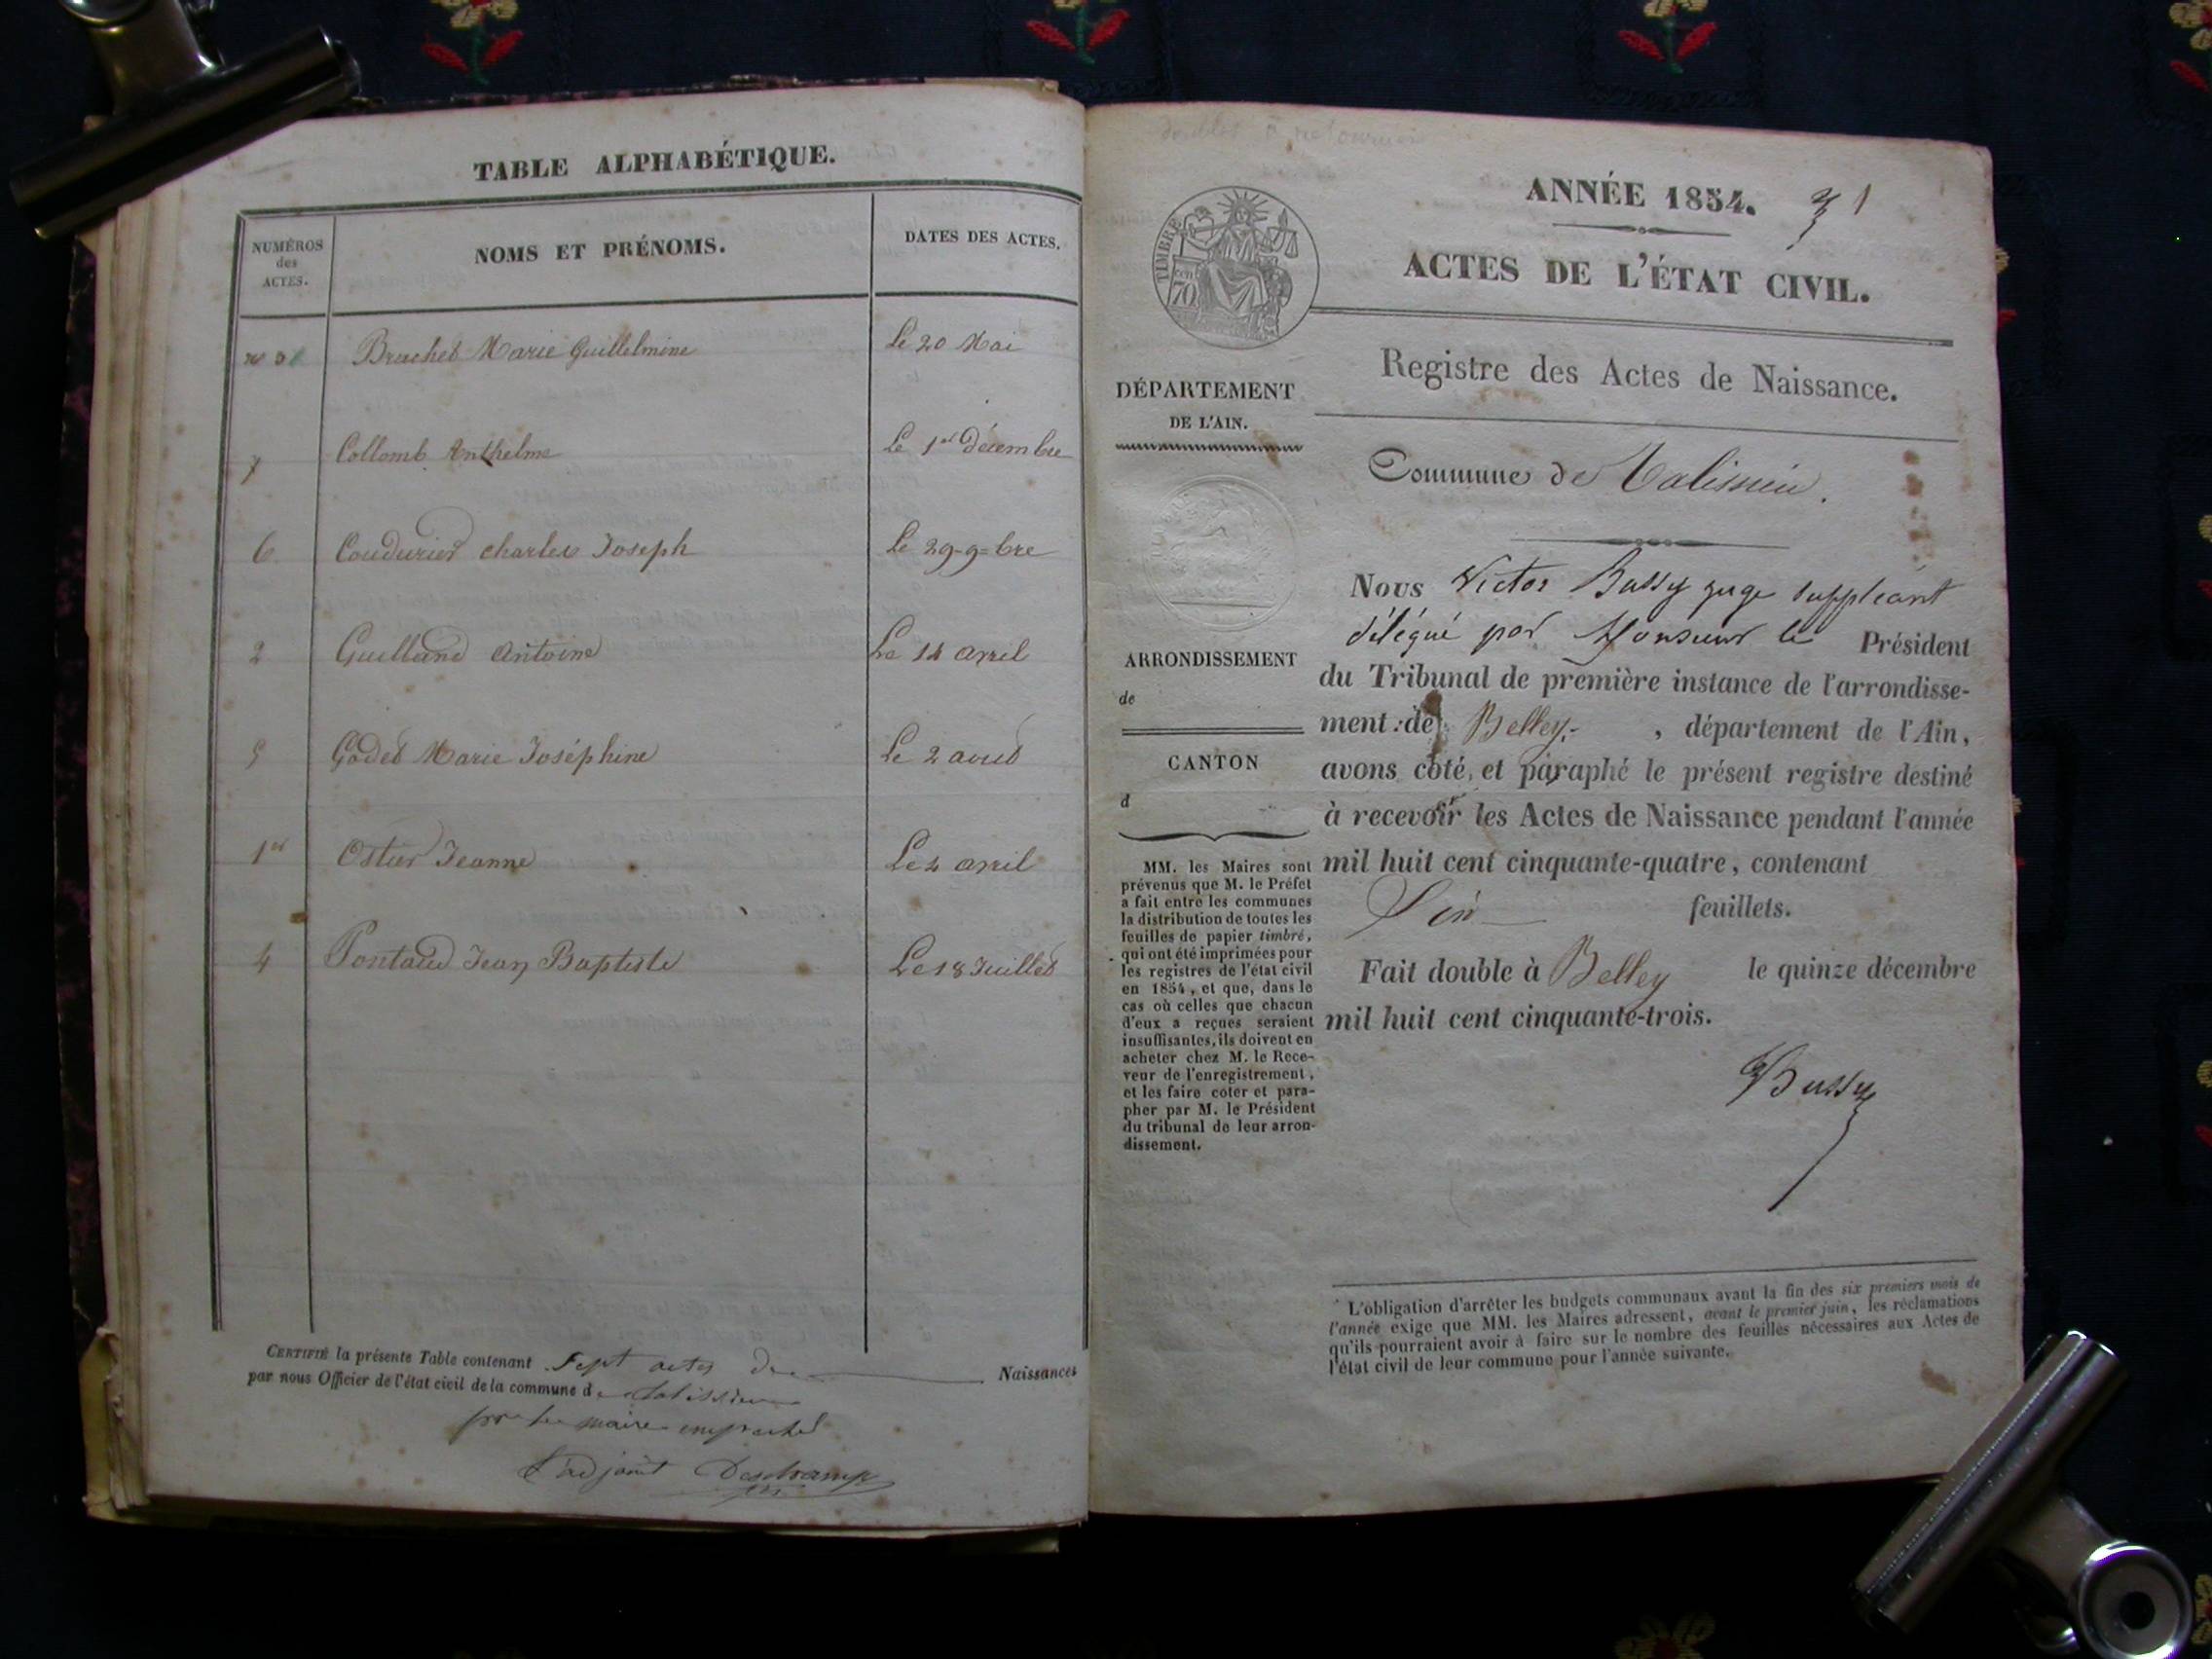 TABLE ALPHABÉTIQUE.
NUMÉROS
des
ACTES.
NOMS ET PRÉNOMS.
DATES DES ACTES.
Marie Guillelmine Le 20 Mai
7 Collomb Anthelme Le 1er Décembre
6 Coudurier charles Joseph Le 29-9=bre
2 Guilland Antoine Le 14 avril
5 Godet Marie Joséphine Le 2 aout
1er Ostier Jeanne Le 4 avril
4 Pontaud Jean Baptiste Le 18 Juillet
CERTIFIÉ la présente Table contenant Sept actes de Naissances
par nous Officier de l'état civil de la commune de Talissieu
pr le maire empeché
L'adjoint Deschamps
doubles à retourner
ANNÉE 1854. 1
TIMBRE
70
ACTES DE L'ÉTAT CIVIL.
Registre des Actes de Naissance.
DÉPARTEMENT
DE L'AIN.
Commune de Talissieu.
ARRONDISSEMENT
de
CANTON
d
MM. les Maires sont
prévenus que M. le Préfet
a fait entre les communes
la distribution de toutes les
feuilles de papier timbré,
qui ont été imprimées pour
les registres de l'état civil
en 1854, et que, dans le
cas où celles que chacun
d'eux a reçues seraient
insuffisantes, ils doivent en
acheter chez M. le Rece-
veur de l'enregistrement,
et les faire coter et para-
pher par M. le Président
du tribunal de leur arron-
dissement.
Nous Victor Bussy juge suppléant
délégué par Monsieur le Président
du Tribunal de première instance de l'arrondisse-
ment de Belley, département de l'Ain,
avons coté, et paraphé le présent registre destiné
à recevoir les Actes de Naissance pendant l'année
mil huit cent cinquante-quatre, contenant
feuillets.
Fait double à Belley le quinze décembre
mil huit cent cinquante-trois.
Bussy
L'obligation d'arrêter les budgets communaux avant la fin des six premiers mois de
l'année exige que MM. les Maires adressent, avant le premier juin, les réclamations
qu'ils pourraient avoir à faire sur le nombre des feuilles nécessaires aux Actes de
l'état civil de leur commune pour l'année suivante.